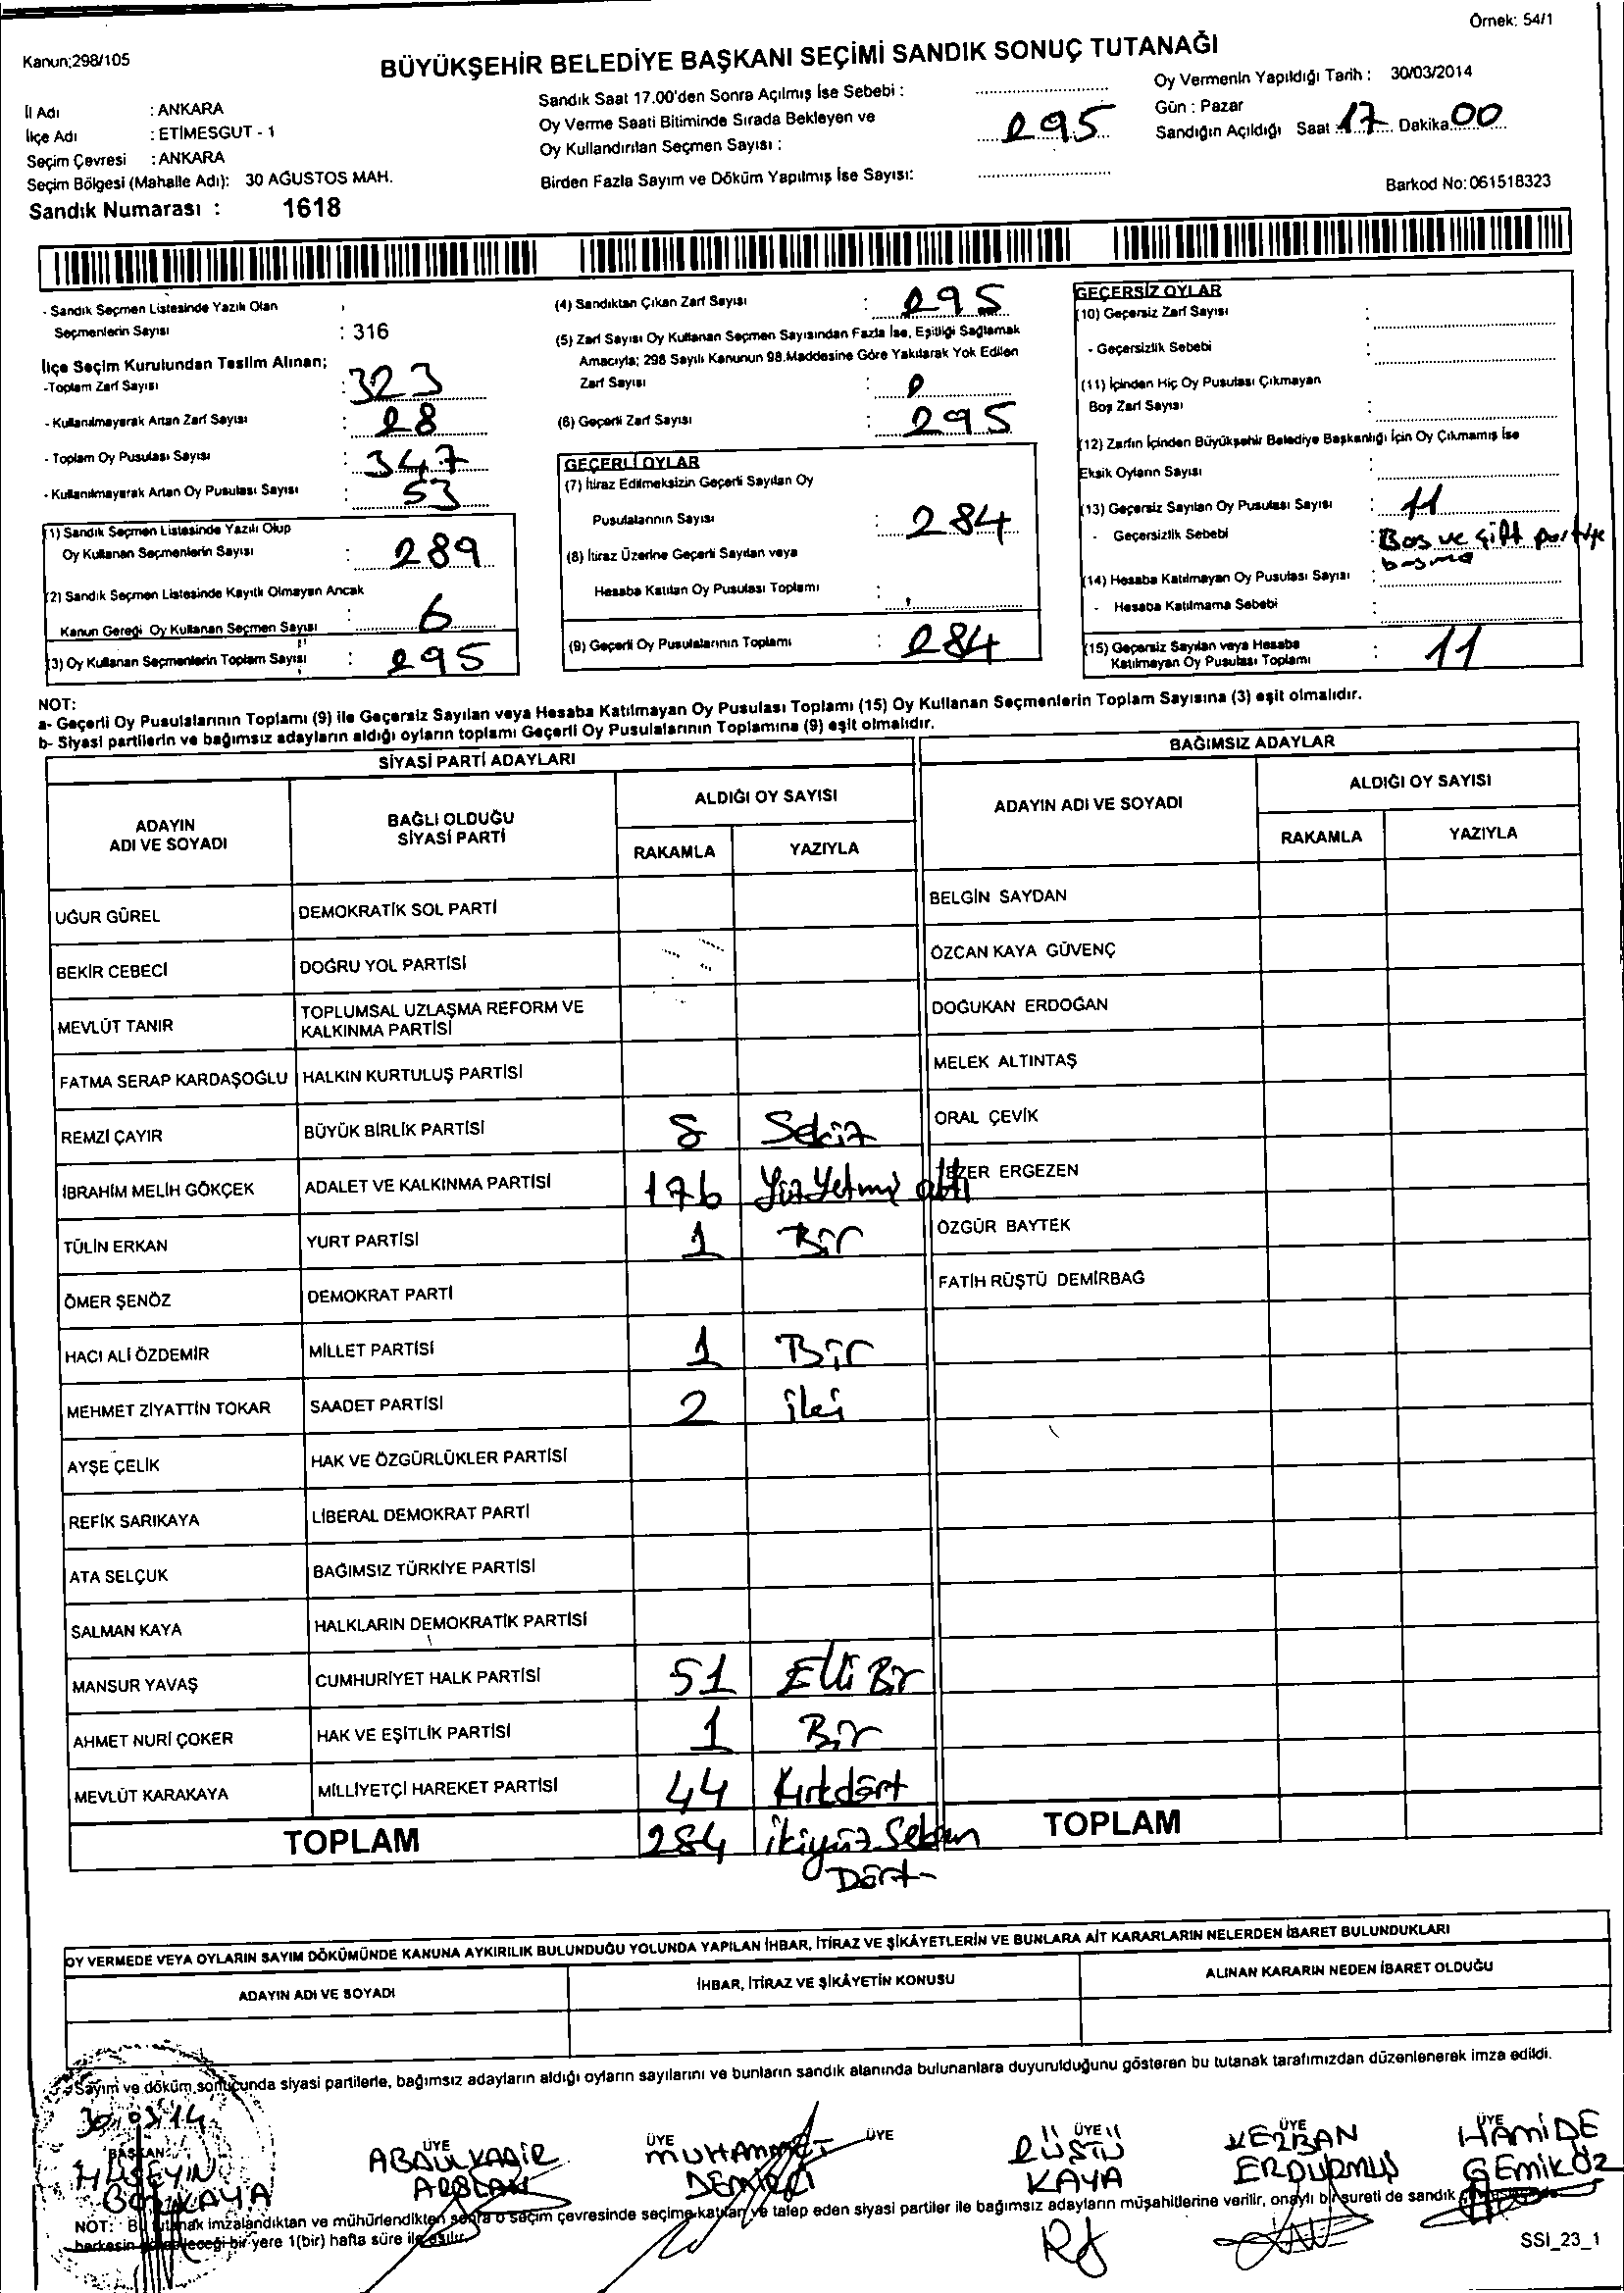 Örnek: 54/1
Kanun;298/105
BÜYÜKŞEHİR BELEDİYE BAŞKANI SEÇİMİ SANDIK SONUÇ TUTANAĞI
İl Adı : ANKARA
İlçe Adı : ETİMESGUT - 1
Seçim Çevresi : ANKARA
Seçim Bölgesi (Mahalle Adı): 30 AĞUSTOS MAH.
Sandık Numarası : 1618
Sandık Saat 17.00'den Sonra Açılmış İse Sebebi :
Oy Verme Saati Bitiminde Sırada Bekleyen ve
Oy Kullandırılan Seçmen Sayısı : 295
Birden Fazla Sayım ve Döküm Yapılmış İse Sayısı:
Oy Vermenin Yapıldığı Tarih : 30/03/2014
Gün : Pazar
Sandığın Açıldığı Saat : 17 Dakika 00
Barkod No: 061518323
- Sandık Seçmen Listesinde Yazılı Olan
Seçmenlerin Sayısı : 316
İlçe Seçim Kurulundan Teslim Alınan;
-Toplam Zarf Sayısı : 323
- Kullanılmayarak Artan Zarf Sayısı : 28
- Toplam Oy Pusulası Sayısı : 347
- Kullanılmayarak Artan Oy Pusulası Sayısı : 53
(1) Sandık Seçmen Listesinde Yazılı Olup
Oy Kullanan Seçmenlerin Sayısı : 289
(2) Sandık Seçmen Listesinde Kayıtlı Olmayan Ancak
Kanun Gereği Oy Kullanan Seçmen Sayısı : 6
(3) Oy Kullanan Seçmenlerin Toplam Sayısı : 295
(4) Sandıktan Çıkan Zarf Sayısı : 295
(5) Zarf Sayısı Oy Kullanan Seçmen Sayısından Fazla İse, Eşitliği Sağlamak
Amacıyla; 298 Sayılı Kanunun 98.Maddesine Göre Yakılarak Yok Edilen
Zarf Sayısı : 0
(6) Geçerli Zarf Sayısı : 295
GEÇERLİ OYLAR
(7) İtiraz Edilmeksizin Geçerli Sayılan Oy
Pusulalarının Sayısı : 284
(8) İtiraz Üzerine Geçerli Sayılan veya
Hesaba Katılan Oy Pusulası Toplamı :
(9) Geçerli Oy Pusulalarının Toplamı : 284
GEÇERSİZ OYLAR
(10) Geçersiz Zarf Sayısı :
- Geçersizlik Sebebi :
(11) İçinden Hiç Oy Pusulası Çıkmayan
Boş Zarf Sayısı :
(12) Zarfın İçinden Büyükşehir Belediye Başkanlığı İçin Oy Çıkmamış İse
Eksik Oyların Sayısı :
(13) Geçersiz Sayılan Oy Pusulası Sayısı : 11
- Geçersizlik Sebebi : Boş ve çift partiye
basma
(14) Hesaba Katılmayan Oy Pusulası Sayısı :
- Hesaba Katılmama Sebebi :
(15) Geçersiz Sayılan veya Hesaba
Katılmayan Oy Pusulası Toplamı : 11
NOT:
a- Geçerli Oy Pusulalarının Toplamı (9) ile Geçersiz Sayılan veya Hesaba Katılmayan Oy Pusulası Toplamı (15) Oy Kullanan Seçmenlerin Toplam Sayısına (3) eşit olmalıdır.
b- Siyasi partilerin ve bağımsız adayların aldığı oyların toplamı Geçerli Oy Pusulalarının Toplamına (9) eşit olmalıdır.
SİYASİ PARTİ ADAYLARI
ADAYIN
ADI VE SOYADI
BAĞLI OLDUĞU
SİYASİ PARTİ
ALDIĞI OY SAYISI
RAKAMLA YAZIYLA
UĞUR GÜREL DEMOKRATİK SOL PARTİ
BEKİR CEBECİ DOĞRU YOL PARTİSİ
MEVLÜT TANIR TOPLUMSAL UZLAŞMA REFORM VE
KALKINMA PARTİSİ
FATMA SERAP KARDAŞOĞLU HALKIN KURTULUŞ PARTİSİ
REMZİ ÇAYIR BÜYÜK BİRLİK PARTİSİ 8 Sekiz
İBRAHİM MELİH GÖKÇEK ADALET VE KALKINMA PARTİSİ 176 Yüz Yetmiş altı
TÜLİN ERKAN YURT PARTİSİ 1 Bir
ÖMER ŞENÖZ DEMOKRAT PARTİ
HACI ALİ ÖZDEMİR MİLLET PARTİSİ 1 Bir
MEHMET ZİYATTİN TOKAR SAADET PARTİSİ 2 iki
AYŞE ÇELİK HAK VE ÖZGÜRLÜKLER PARTİSİ
REFİK SARIKAYA LİBERAL DEMOKRAT PARTİ
ATA SELÇUK BAĞIMSIZ TÜRKİYE PARTİSİ
SALMAN KAYA HALKLARIN DEMOKRATİK PARTİSİ
MANSUR YAVAŞ CUMHURİYET HALK PARTİSİ 51 Elli Bir
AHMET NURİ ÇOKER HAK VE EŞİTLİK PARTİSİ 1 Bir
MEVLÜT KARAKAYA MİLLİYETÇİ HAREKET PARTİSİ 44 Kırkdört
TOPLAM 284 ikiyüz Seksen
Dört
BAĞIMSIZ ADAYLAR
ADAYIN ADI VE SOYADI
ALDIĞI OY SAYISI
RAKAMLA YAZIYLA
BELGİN SAYDAN
ÖZCAN KAYA GÜVENÇ
DOĞUKAN ERDOĞAN
MELEK ALTINTAŞ
ORAL ÇEVİK
TEZER ERGEZEN
ÖZGÜR BAYTEK
FATİH RÜŞTÜ DEMİRBAĞ
TOPLAM
OY VERMEDE VEYA OYLARIN SAYIM DÖKÜMÜNDE KANUNA AYKIRILIK BULUNDUĞU YOLUNDA YAPILAN İHBAR, İTİRAZ VE ŞİKÂYETLERİN VE BUNLARA AİT KARARLARIN NELERDEN İBARET BULUNDUKLARI
ADAYIN ADI VE SOYADI İHBAR, İTİRAZ VE ŞİKÂYETİN KONUSU ALINAN KARARIN NEDEN İBARET OLDUĞU
Sayım ve döküm sonucunda siyasi partilerle, bağımsız adayların aldığı oyların sayılarını ve bunların sandık alanında bulunanlara duyurulduğunu gösteren bu tutanak tarafımızdan düzenlenerek imza edildi.
30.03.14
BAŞKAN ÜYE ÜYE ÜYE ÜYE ÜYE ÜYE
HÜSEYİN ABDULKADİR MUHAMMET RÜŞTÜ KEZBAN HAMİDE
BOZKAYA ARSLAN DEMİRCİ KAYA ERDURMUŞ GEMİKÖZ
NOT: Bu tutanak imzalandıktan ve mühürlendikten sonra o seçim çevresinde seçime katılan ve talep eden siyasi partiler ile bağımsız adayların müşahitlerine verilir, onaylı bir sureti de sandık
herkesin görebileceği bir yere 1(bir) hafta süre ile asılır.
SSI_23_1